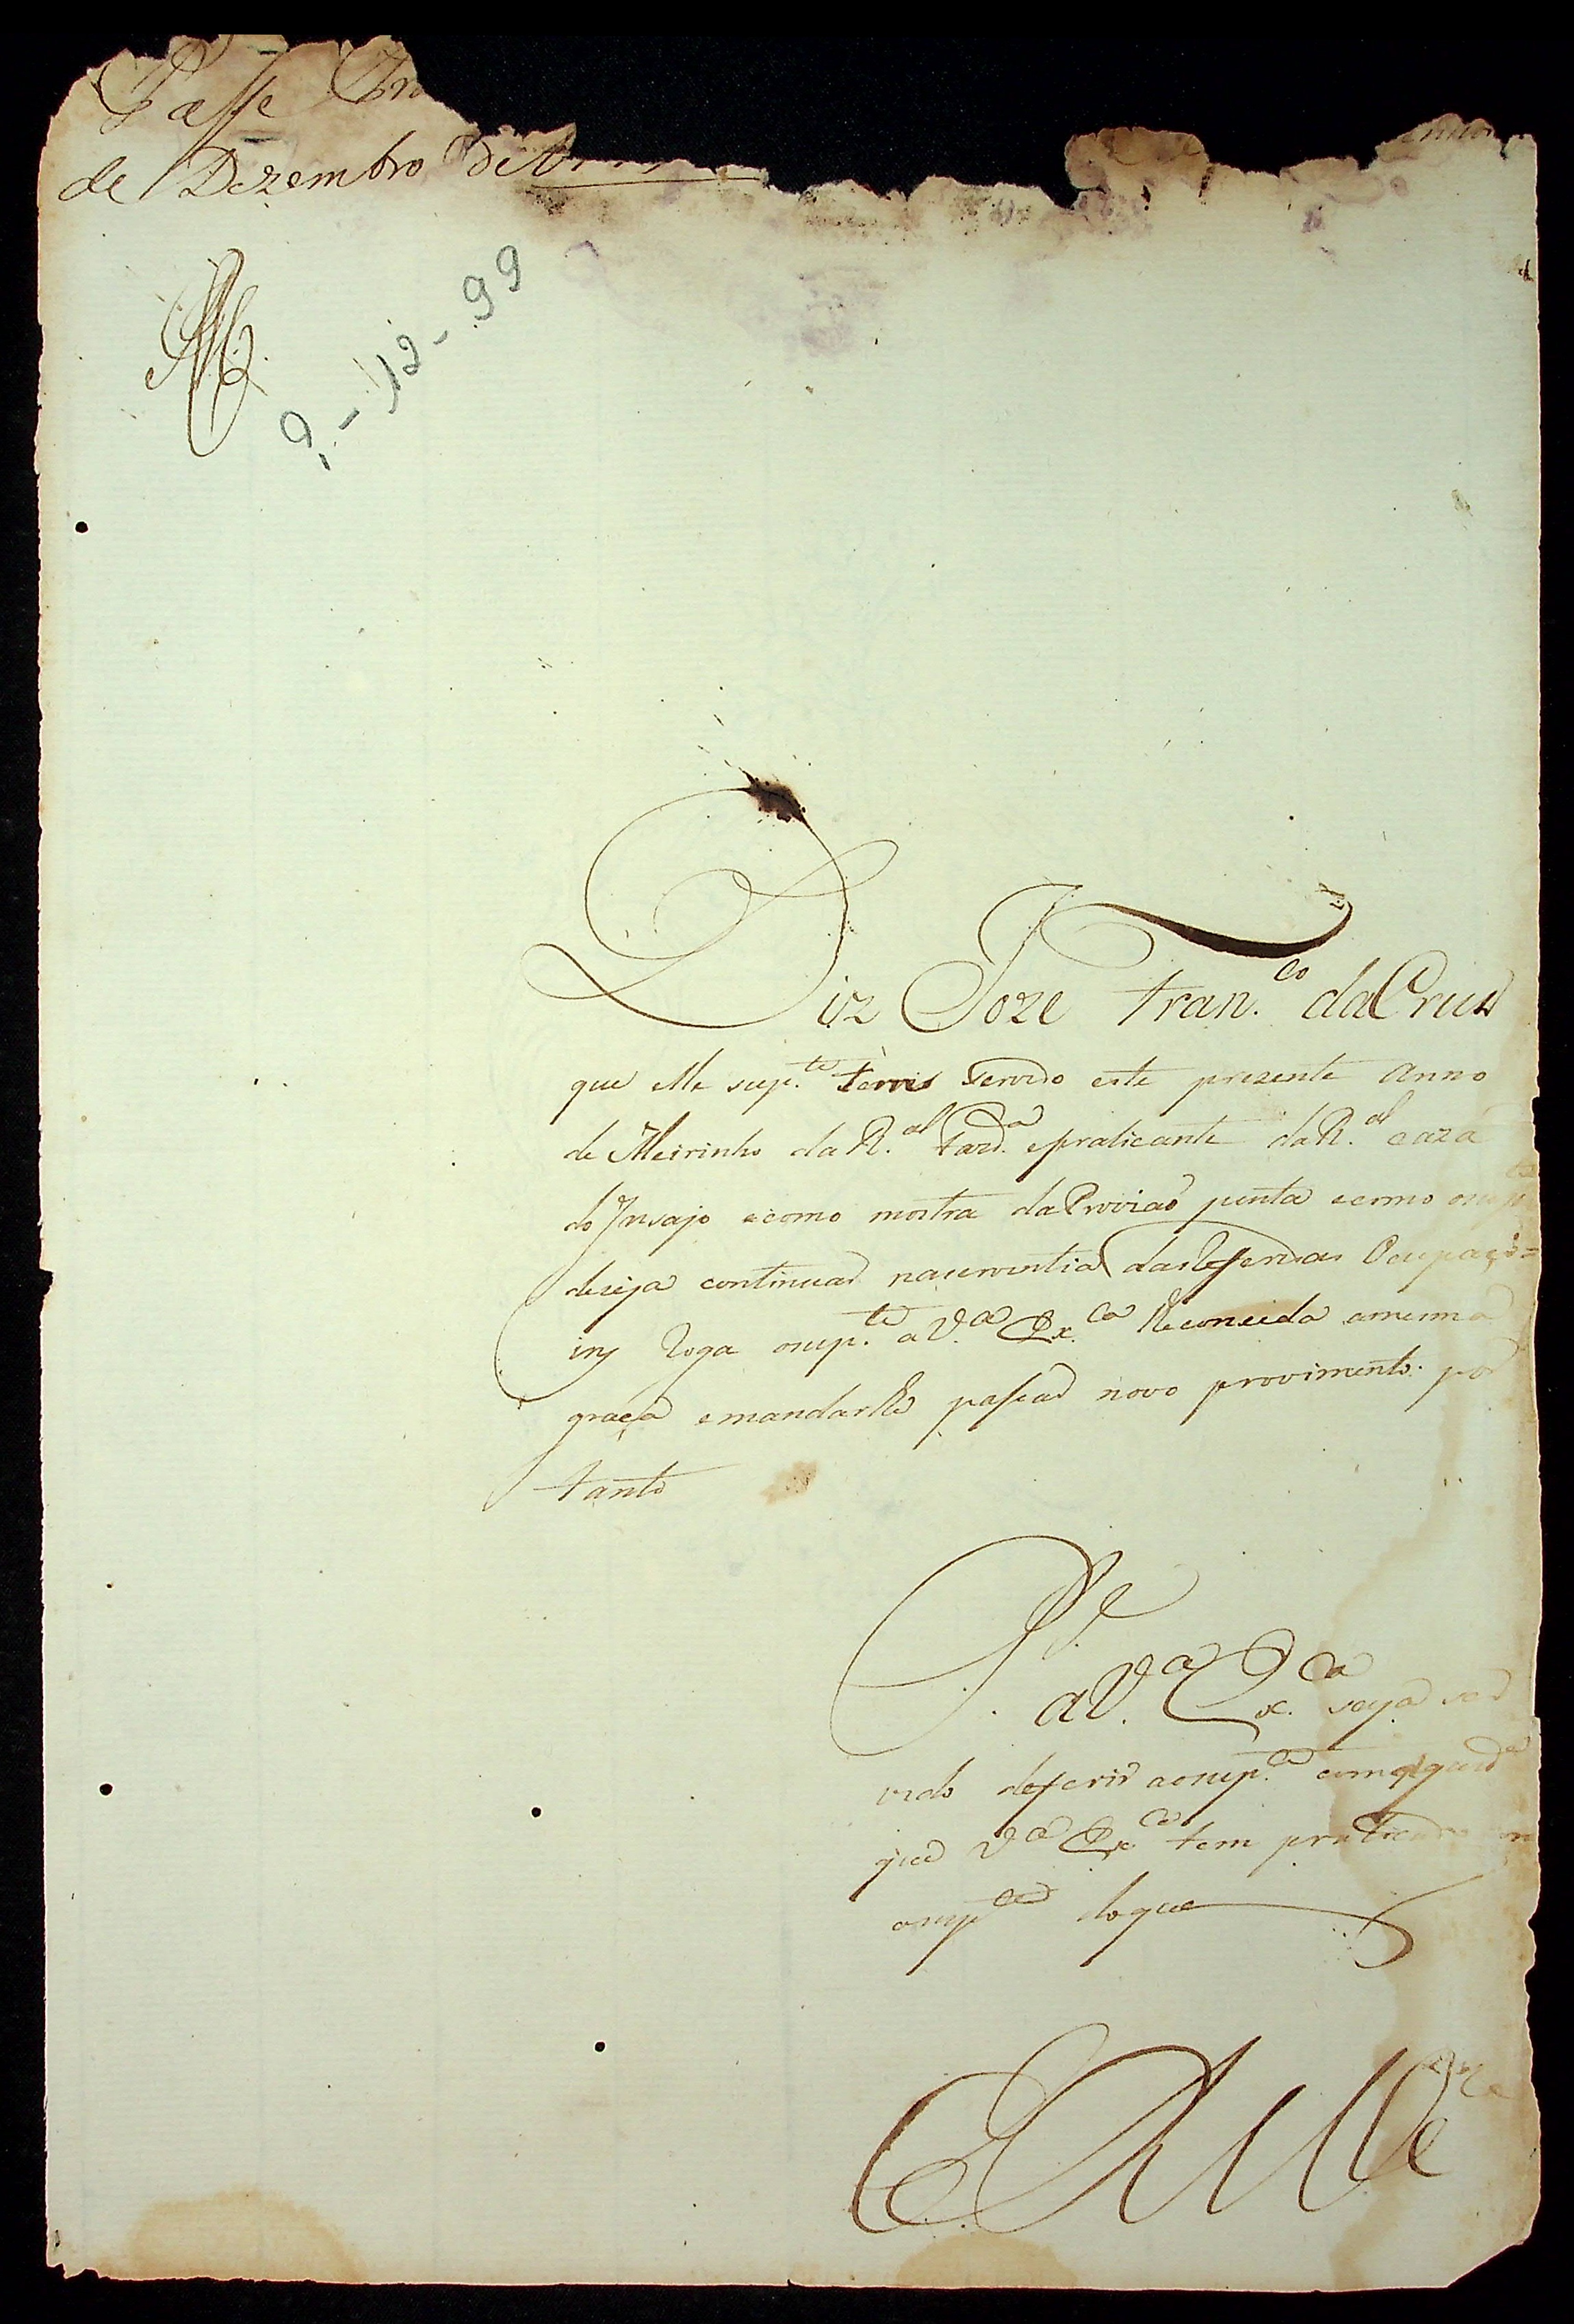 Passe
de Dezembro de
9-12-99
Diz Joze Fran.co da Crus
que elle sup.te servido este prezente Anno
de Meirinho da R.al Fazd.a e praticante da R.al caza
do Insajo e como mostra da Provizaõ junta e como o sup.te
deseja continuar na serventia das refferidas Ocupaço=
ins Roga o sup.te a V.a Ex.ca lhe conceda a mesma
graça e mandarlhe passar novo provimento. por
tanto
P. e
a V.a Ex.ca seja ser
vido deferir ao sup.te
que V.a Ex.ca tem praticado
o sup.te do que
E R M.ce